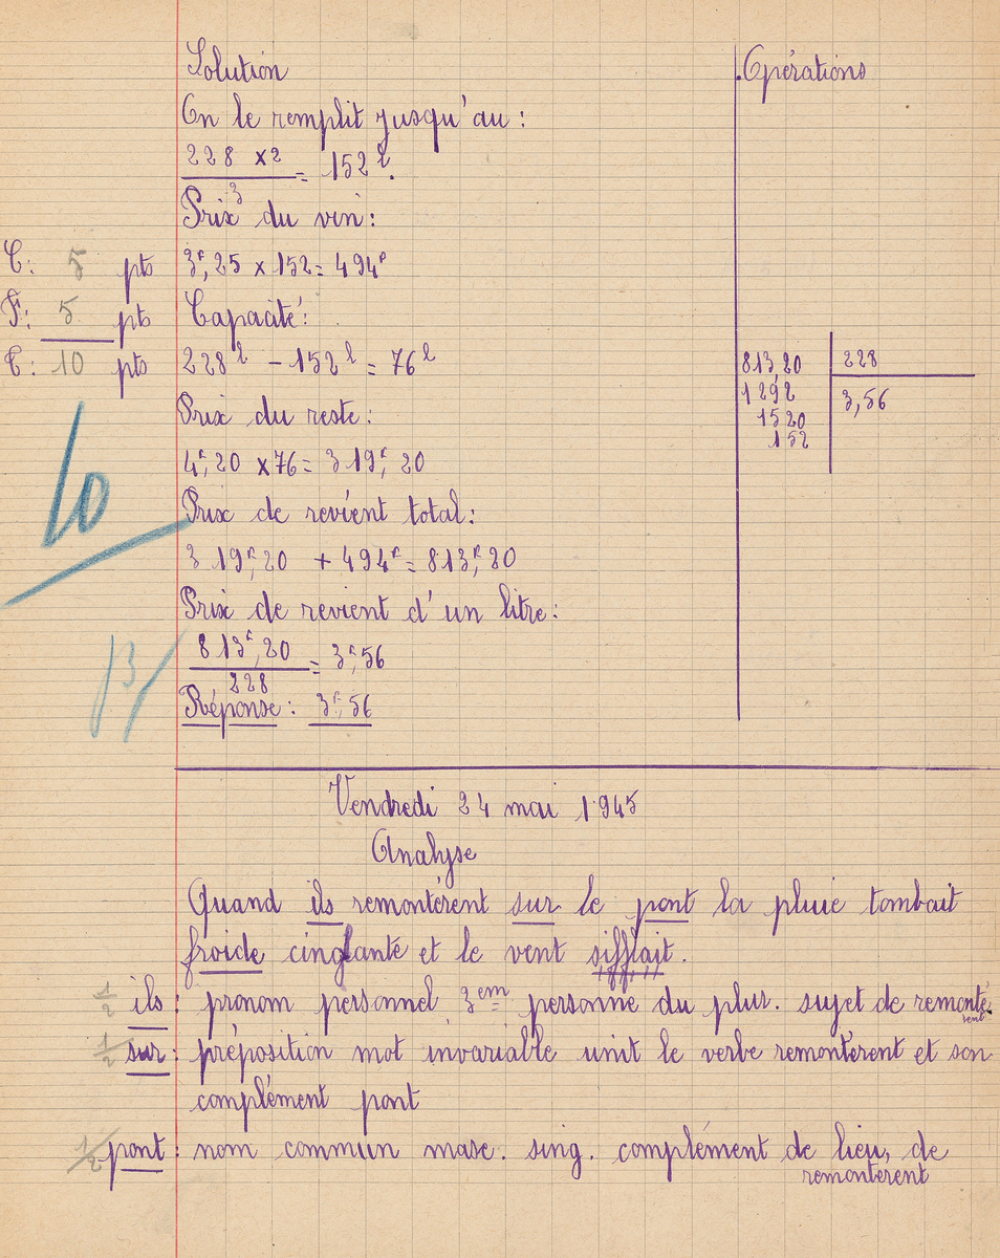 Solution
Opérations
On le remplit jusqu'au :
228 x2 / 3 = 152 l.
Prix du vin :
C : 5 pts
3f,25 x 152 = 494f
F : 5 pts
Capacité :
C : 10 pts
228 l - 152 l = 76 l
813,20 | 228
1292 | 3,56
1520
152
Prix du reste :
4f,20 x 76 = 319f,20
10
Prix de revient total :
319f,20 + 494f = 813f,20
Prix de revient d'un litre :
813f,20 / 228 = 3f,56
Réponse : 3f,56
Vendredi 24 mai 1945
Analyse
Quand ils remontèrent sur le pont la pluie tombait
froide cinglante et le vent sifflait.
1/2 ils : pronom personnel 3em personne du plur. sujet de remontè
rent
1/2 sur : préposition mot invariable unit le verbe remontèrent et son
complément pont
1/2 pont : nom commun masc. sing. complément de lieu, de
remontèrent